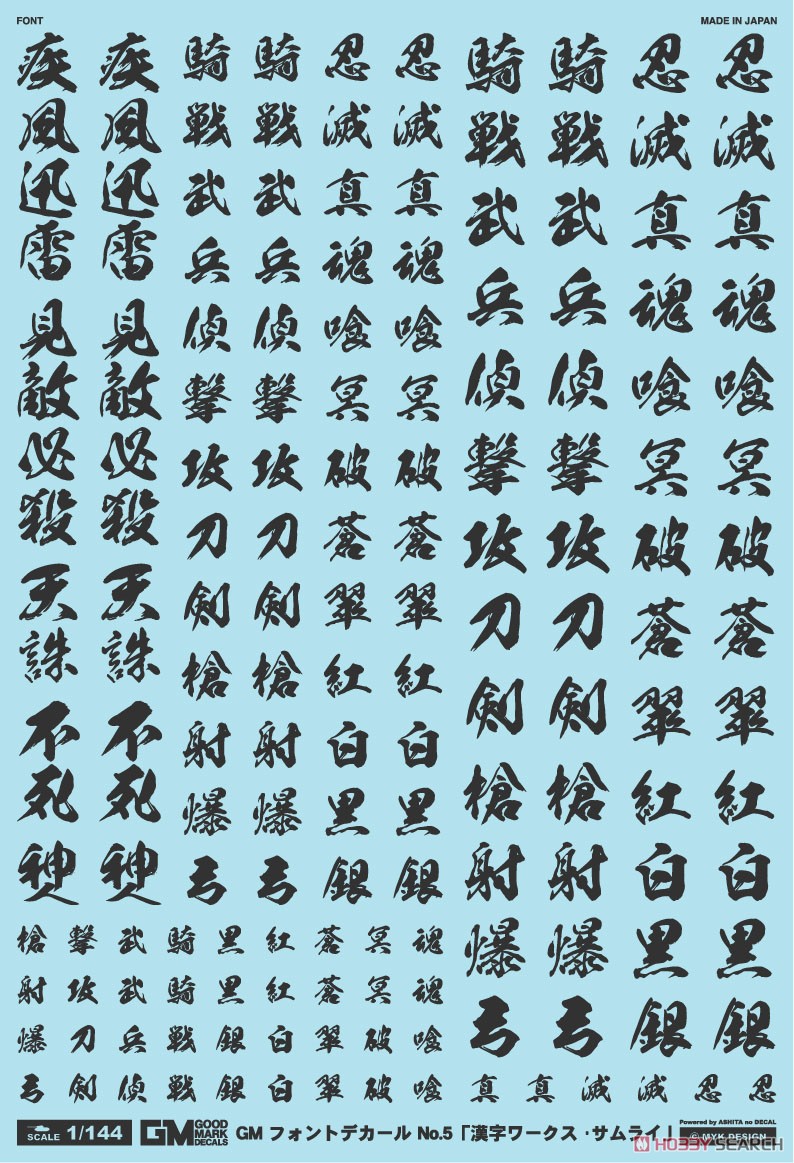 FONT
MADE IN JAPAN
疾風迅雷
疾風迅雷
見敵必殺
見敵必殺
天誅
天誅
不死
不死
騎戦武兵偵撃攻刀剣槍射爆弓
騎戦武兵偵撃攻刀剣槍射爆弓
忍滅真魂喰冥破蒼翠紅白黒銀
忍滅真魂喰冥破蒼翠紅白黒銀
騎戦武兵偵撃攻刀剣槍射爆弓
騎戦武兵偵撃攻刀剣槍射爆弓
忍滅真魂喰冥破蒼翠紅白黒銀
忍滅真魂喰冥破蒼翠紅白黒銀
槍 撃 武 騎 黒 紅 蒼 冥 魂
射 攻 武 騎 黒 紅 蒼 冥 魂
爆 刀 兵 戦 銀 白 翠 破 喰
弓 剣 偵 戦 銀 白 翠 破 喰 真 真 滅 滅 忍 忍
SCALE 1/144
GM GOOD MARK DECALS
GM フォントデカール No.5「漢字ワークス・サムライ」
Powered by ASHITA no DECAL
© MYK DESIGN
HOBBYSEARCH